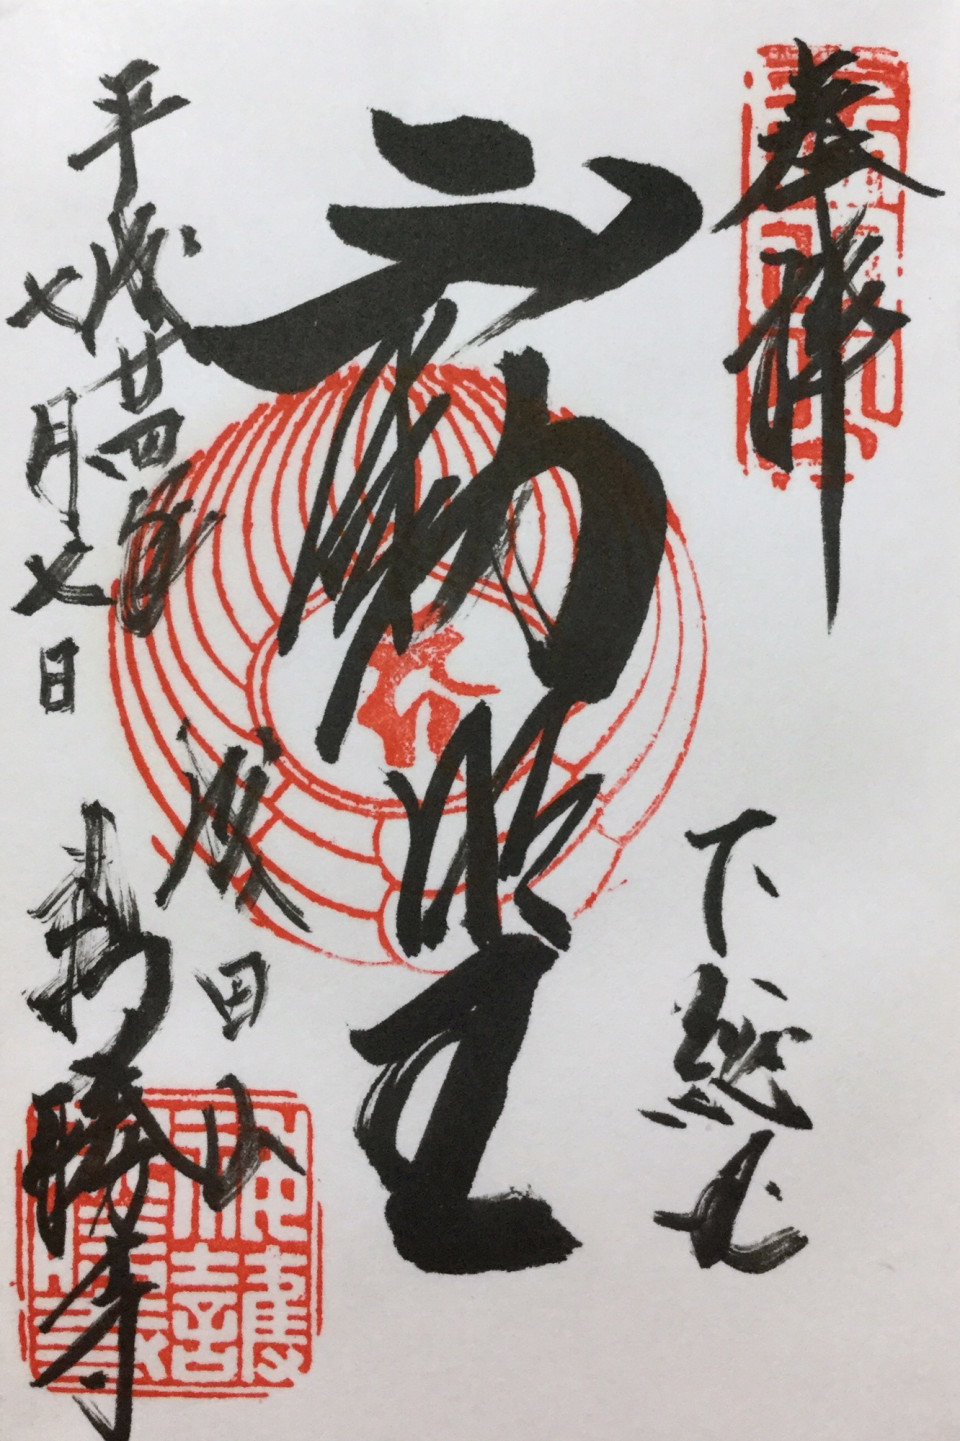 奉拝
下総国
不動明王
平成廿四年
七月七日
成田山
新勝寺